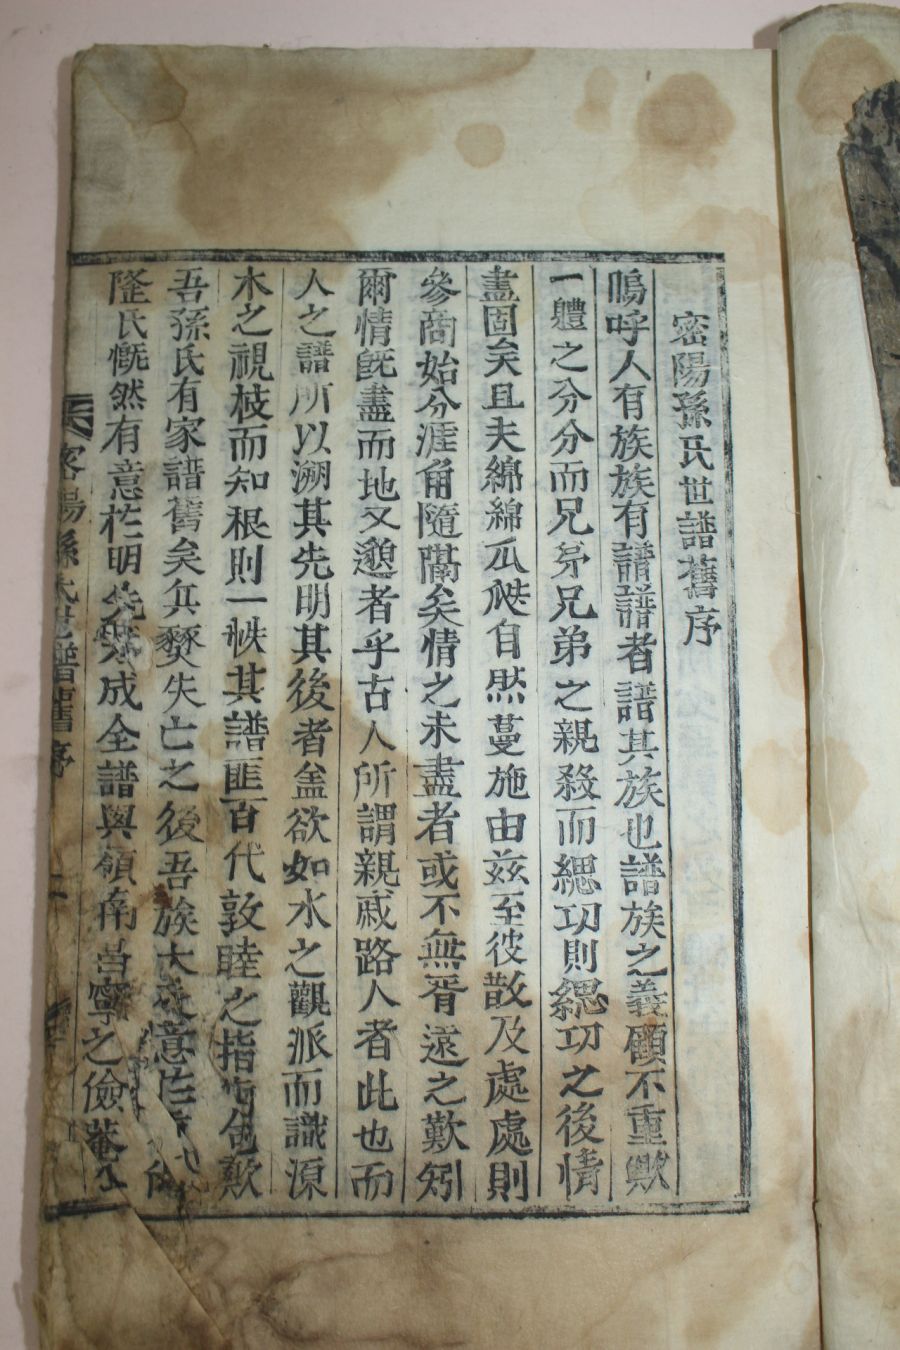 密陽孫氏世譜舊序
嗚呼人有族族有譜譜者譜其族也譜族之義顧不重歟
一軆之分分而兄弟兄弟之親殺而緦功則緦功之後情
盡固矣且夫綿綿瓜瓞自然蔓施由兹至彼散及處處則
參商始分涯角隨隔矣情之未盡者或不無胥遠之歎矧
爾情旣盡而地又邈者乎古人所謂親戚路人者此也而
人之譜所以溯其先明其後者盖欲如水之觀派而識源
木之視枝而知根則一帙其譜匪百代敦睦之指南也歟
吾孫氏有家譜舊矣兵燹失亡之後吾族大 意
隆氏慨然有意於明 成全譜與嶺南昌寧之儉菴公
密陽孫氏世譜舊序